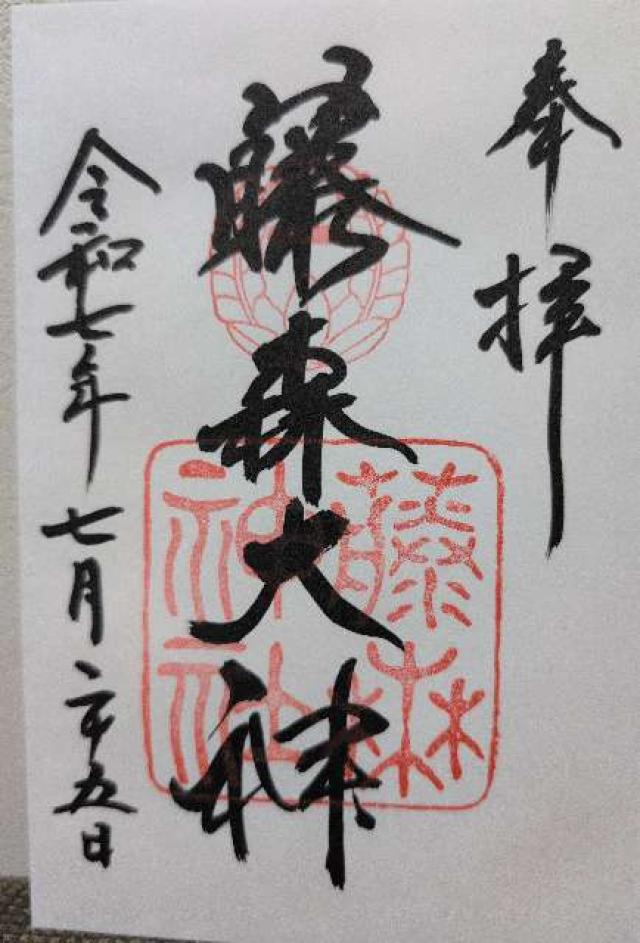 奉拝
藤森大神
藤森
神社
令和七年七月二十五日